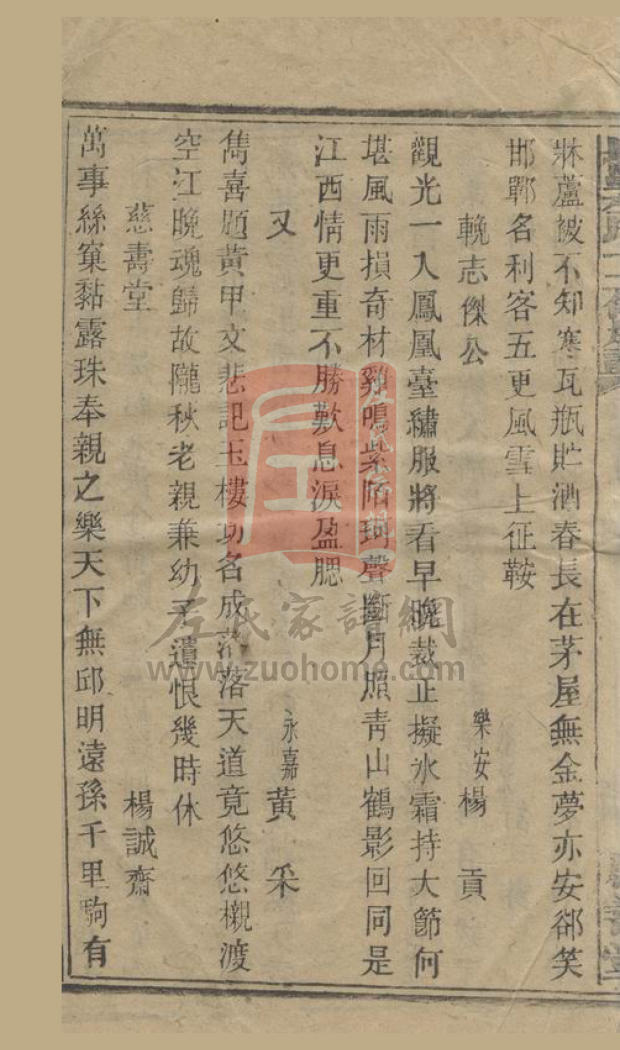 牀蘆被不知寒瓦瓶貯酒春長在茅屋無金夢亦安郤笑
邯鄲名利客五更風雪上征鞍
輓志傑公 樂安楊貢
觀光一入鳳凰臺繡服將看早晚裁止擬氷霜持大節何
堪風雨損奇材雞鳴紫陌珂聲斷月照靑山鶴影回同是
江西情更重不勝歎息淚盈腮
又 永嘉黃采
雋喜題黃甲文悲記玉樓功名成落落天道竟悠悠櫬渡
空江晚魂歸故隴秋老親兼幼子遺恨幾時休
慈壽堂 楊誠齋
萬事絲窠黏露珠奉親之樂天下無邱明遠孫千里駒有
左氏家譜網
www.zuohome.com